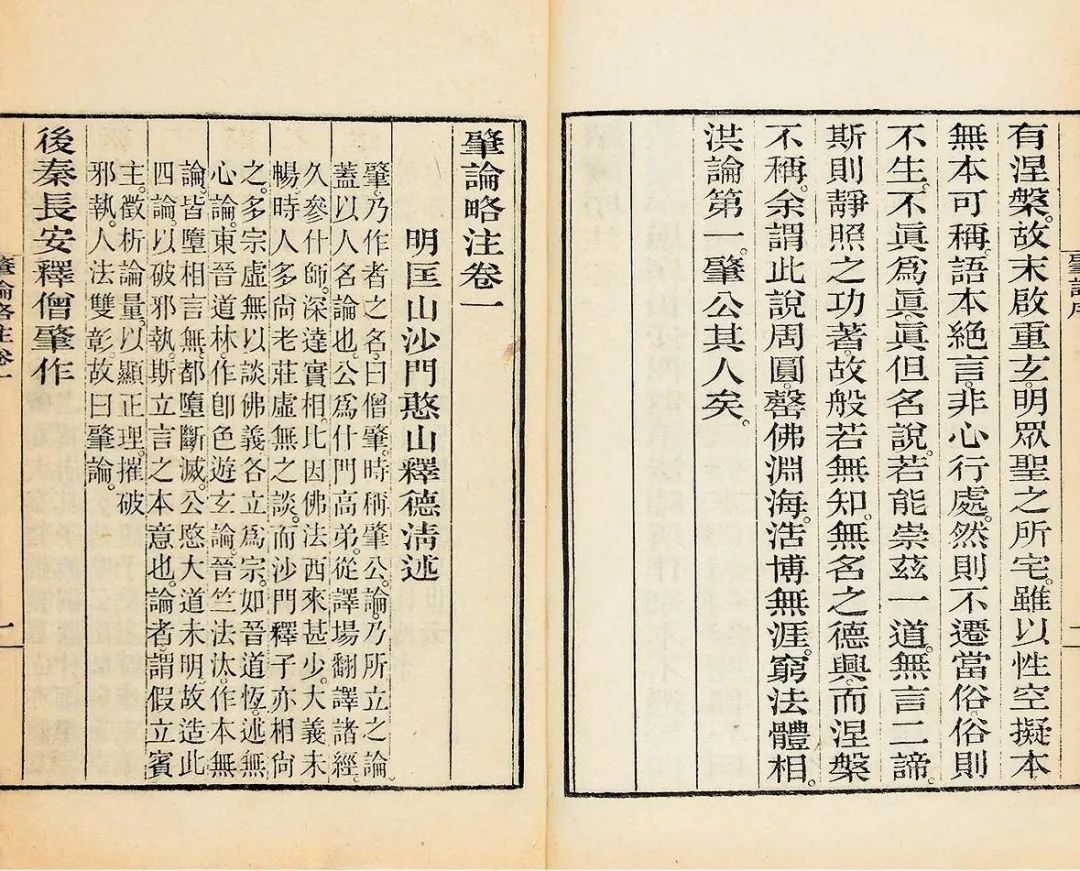 肇論序
有涅槃。故末啟重玄。明眾聖之所宅。雖以性空擬本
無本可稱。語本絕言。非心行處。然則不遷當俗。俗則
不生。不眞爲眞。眞但名說。若能崇茲一道。無言二諦。
斯則靜照之功著。故般若無知。無名之德興。而涅槃
不稱。余謂此說周圓。罄佛淵海。浩博無涯。窮法體相。
洪論第一。肇公其人矣。
肇論略注卷一
明匡山沙門憨山釋德淸述
肇。乃作者之名。曰僧肇。時稱肇公。論。乃所立之論
蓋以人名論也。公爲什門高弟。從譯場翻譯諸經。
久參什師。深達實相。比因佛法西來甚少。大義未
暢。時人多尙老莊虛無之談。而沙門釋子亦相尙
之。多宗虛無以談佛義。各立爲宗。如晉道恆。述無
心論。東晉道林。作卽色遊玄論。晉竺法汰。作本無
論。皆墮相言無。都墮斷滅。公愍大道未明。故造此
四論以破邪執。斯立言之本意也。論者。謂假立賓
主。徵析論量。以顯正理。摧破
邪執。人法雙彰。故曰肇論。
後秦長安釋僧肇作
肇論略注卷一
一